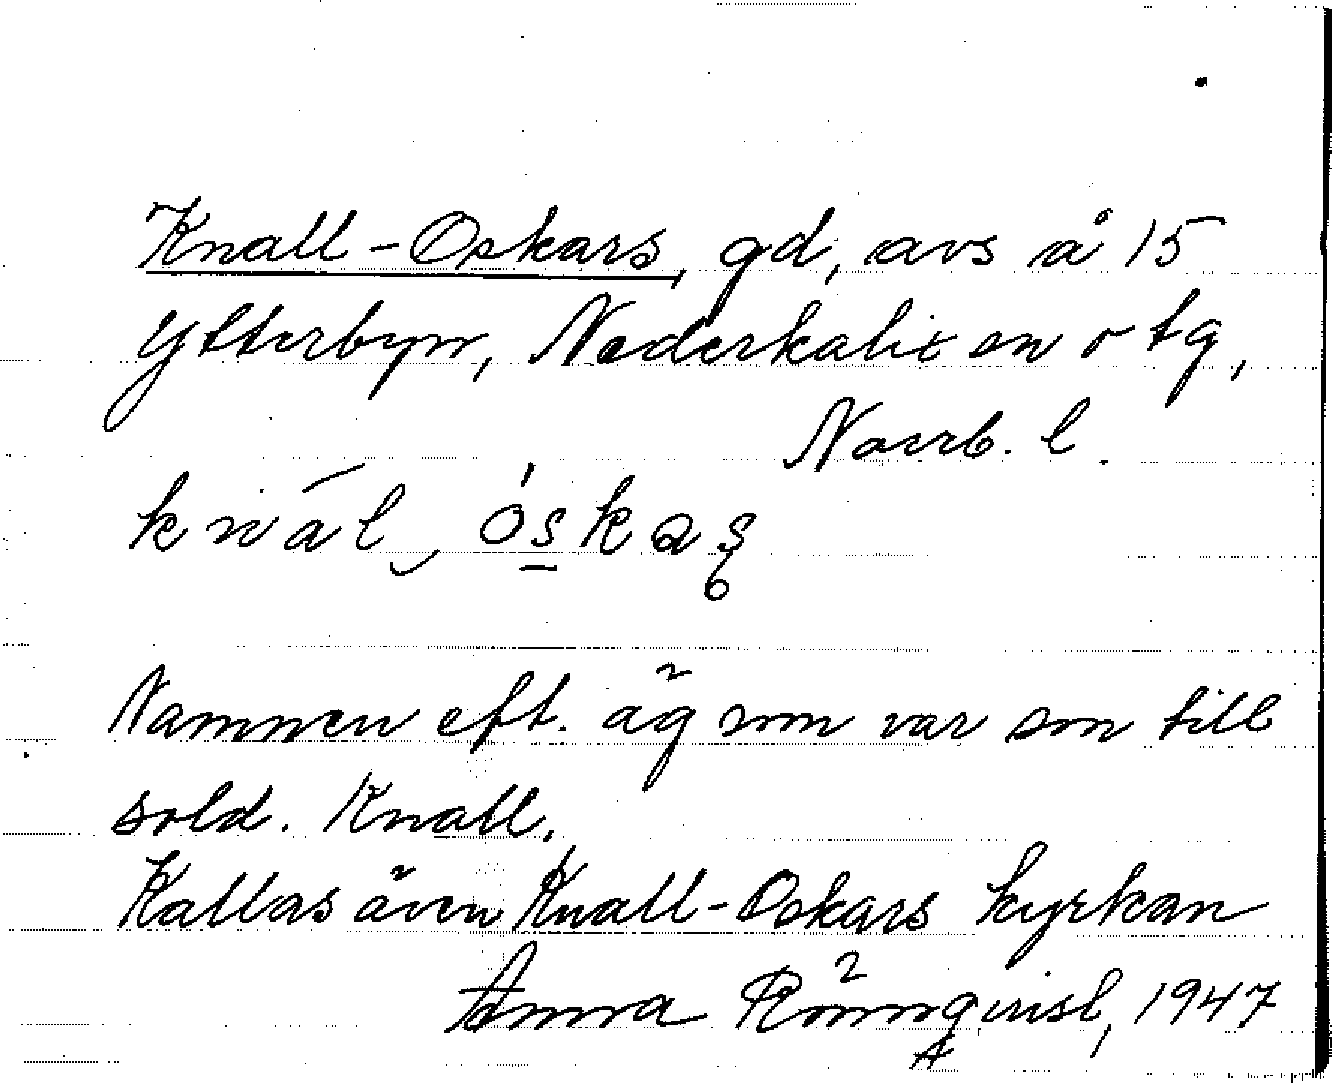 Knall-Oskars, gd, avs å 15
Ytterbyn, Nederkalix sn o tg,
Norrb. l.
knál, óskaş
Namnen eft. äg som var son till
sold. Knall.
Kallas även Knall-Oskars kyrkan
Anna Rönnqvist, 1947